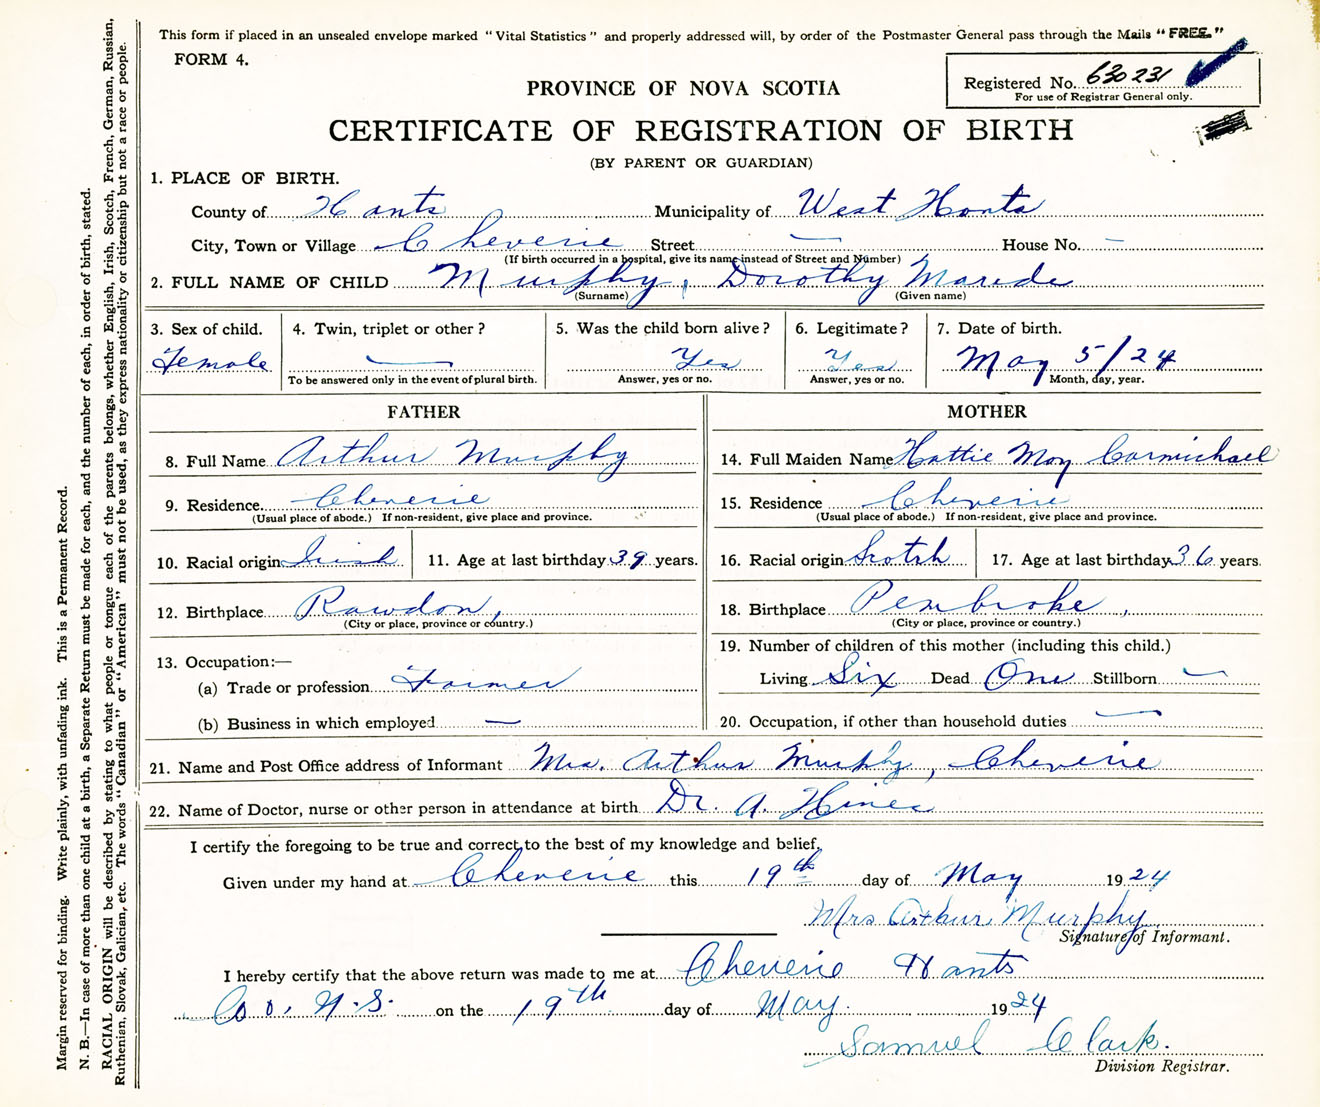 This form if placed in an unsealed envelope marked "Vital Statistics" and properly addressed will, by order of the Postmaster General pass through the Mails "FREE."
FORM 4.
Registered No. 630231
For use of Registrar General only.
PROVINCE OF NOVA SCOTIA
CERTIFICATE OF REGISTRATION OF BIRTH
(BY PARENT OR GUARDIAN)
1. PLACE OF BIRTH.
County of Hants Municipality of West Hants
City, Town or Village Cheverie Street — House No. —
(If birth occurred in a hospital, give its name instead of Street and Number)
2. FULL NAME OF CHILD Murphy, Dorothy
(Surname) (Given name)
3. Sex of child. 4. Twin, triplet or other? 5. Was the child born alive? 6. Legitimate? 7. Date of birth.
Female — Yes Yes May 5/24
To be answered only in the event of plural birth. Answer, yes or no. Answer, yes or no. Month, day, year.
FATHER MOTHER
8. Full Name Arthur Murphy 14. Full Maiden Name Hattie May Carmichael
9. Residence Cheverie 15. Residence Cheverie
(Usual place of abode.) If non-resident, give place and province. (Usual place of abode.) If non-resident, give place and province.
10. Racial origin Irish 11. Age at last birthday 39 years. 16. Racial origin Scotch 17. Age at last birthday 36 years.
12. Birthplace Rawdon, 18. Birthplace Pembroke,
(City or place, province or country.) (City or place, province or country.)
13. Occupation:— 19. Number of children of this mother (including this child.)
(a) Trade or profession Farmer Living Six Dead One Stillborn —
(b) Business in which employed — 20. Occupation, if other than household duties —
21. Name and Post Office address of Informant Mrs. Arthur Murphy, Cheverie
22. Name of Doctor, nurse or other person in attendance at birth Dr. A. Hines
I certify the foregoing to be true and correct to the best of my knowledge and belief.
Given under my hand at Cheverie this 19th day of May 1924
Mrs Arthur Murphy
Signature of Informant.
I hereby certify that the above return was made to me at Cheverie Hants
Co, N.S. on the 19th day of May. 1924
Samuel Clark.
Division Registrar.
Margin reserved for binding. Write plainly, with unfading ink. This is a Permanent Record.
N. B.—In case of more than one child at a birth, a Separate Return must be made for each, and the number of each, in order of birth, stated.
RACIAL ORIGIN will be described by stating to what people or tongue each of the parents belongs, whether English, Irish, Scotch, French, German, Russian,
Ruthenian, Slovak, Galician, etc. The words "Canadian" or "American" must not be used, as they express nationality or citizenship but not a race or people.